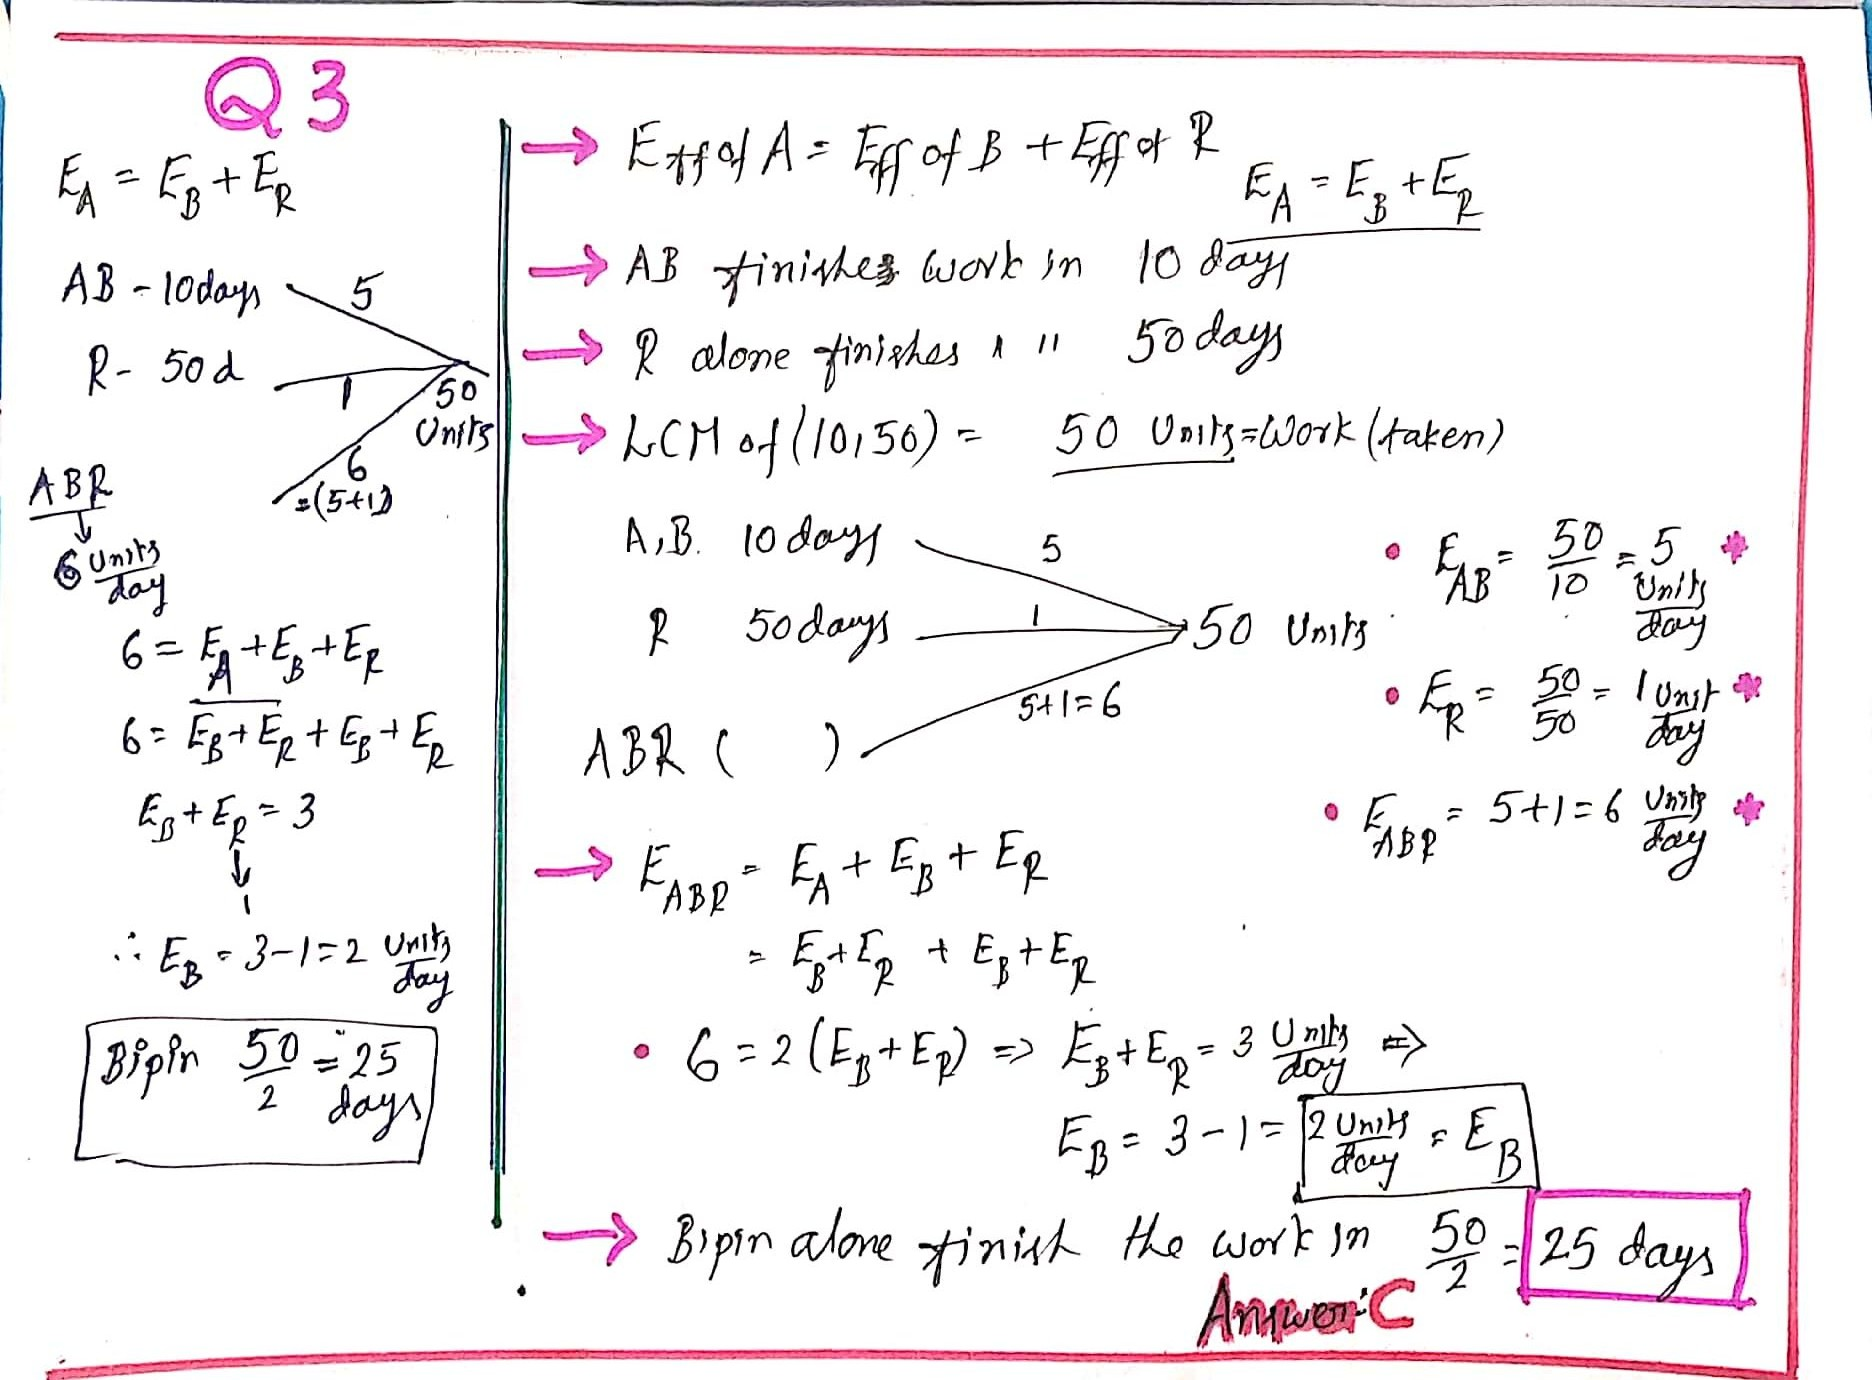 Q3
E_A = E_B + E_R
AB - 10days 5
R - 50d 1
50
Units
6
=(5+1)
ABR
6 Units/day
6 = E_A + E_B + E_R
6 = E_B + E_R + E_B + E_R
E_B + E_R = 3
1
∴ E_B = 3-1 = 2 Units/day
Bipin 50/2 = 25
days
→ Eff of A = Eff of B + Eff of R
E_A = E_B + E_R
→ AB finishes work in 10 days
→ R alone finishes " 50 days
→ LCM of (10,50) = 50 Units = Work (taken)
A,B. 10 days 5
R 50 days 1 50 Units
5+1=6
ABR ( )
• E_AB = 50/10 = 5 Units/day *
• E_R = 50/50 = 1 Unit/day *
• E_ABR = 5+1 = 6 Units/day *
→ E_ABR = E_A + E_B + E_R
= E_B + E_R + E_B + E_R
• 6 = 2(E_B + E_R) ⇒ E_B + E_R = 3 Units/day ⇒
E_B = 3-1 = 2 Units/day = E_B
→ Bipin alone finish the work in 50/2 = 25 days
Answer:C